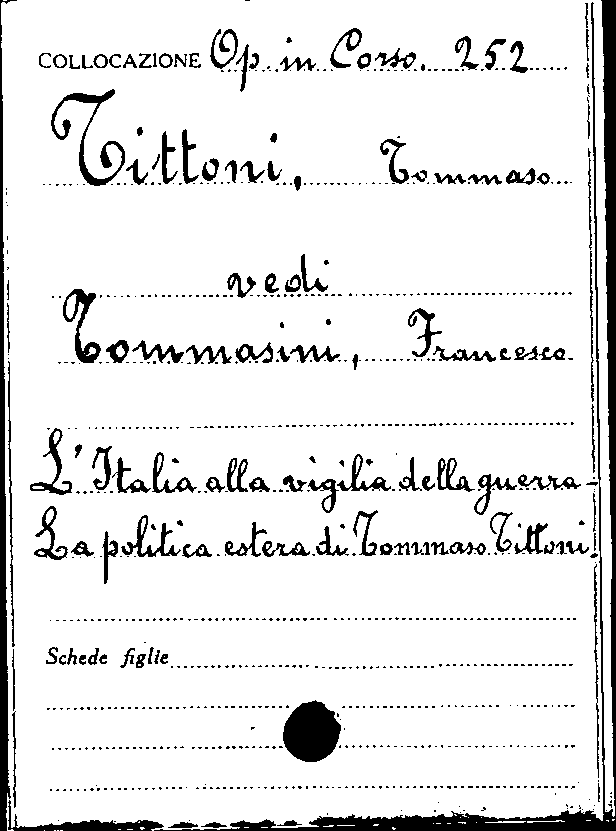 COLLOCAZIONE Op. in Corso. 252
Tittoni, Tommaso
vedi
Tommasini, Francesco
L'Italia alla vigilia della guerra -
La politica estera di Tommaso Tittoni.
Schede figlie